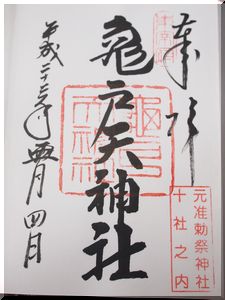 奉拝
元准勅祭神社
十社之内
亀戸天神社
平成二十三年四月四日